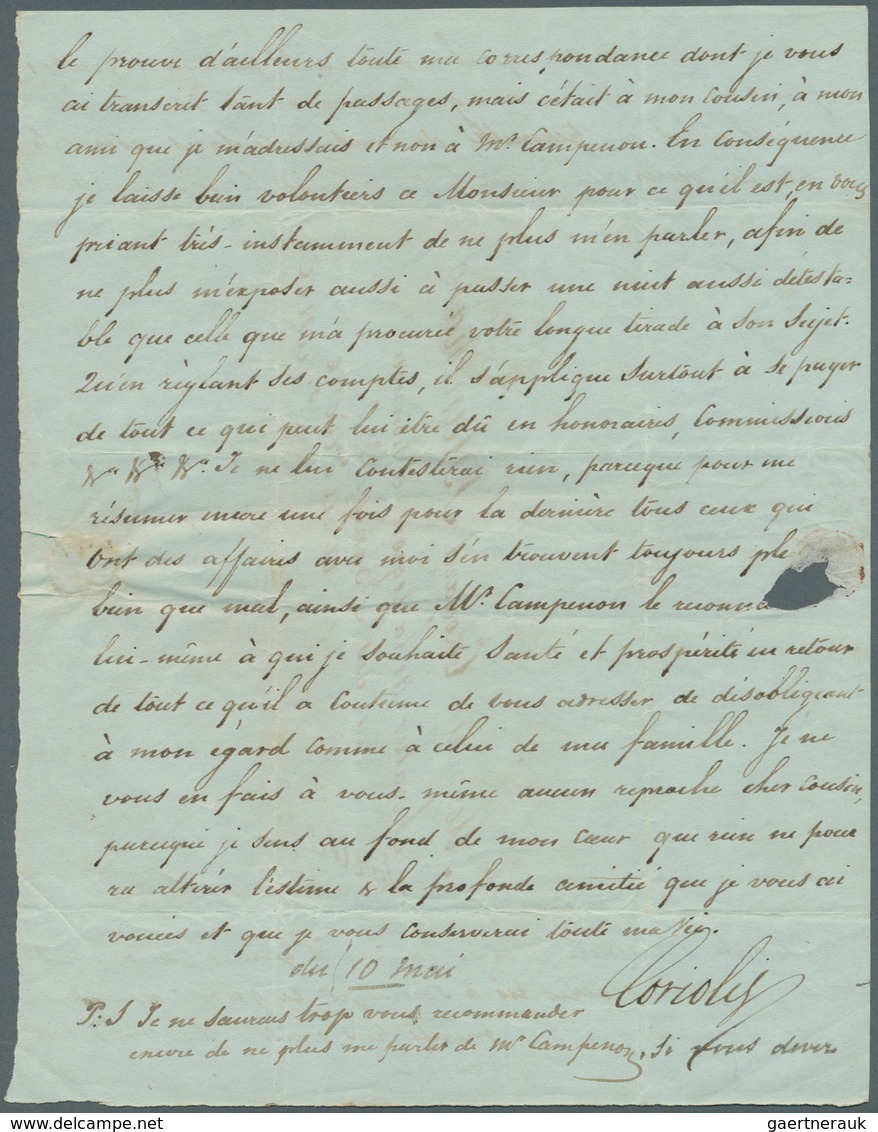 le prouve d'ailleurs toute ma correspondance dont je vous
ai transcrit tant de passages, mais c'était à mon cousin, à mon
ami que je m'adressais et non à Mr. Campenon. En conséquence
je laisse bien volontiers ce Monsieur pour ce qu'il est, en vous
priant très-instamment de ne plus m'en parler, afin de
ne plus m'exposer aussi à passer une nuit aussi détesta-
ble que celle que m'a procurée votre longue tirade à son sujet.
Qu'en règlant ses comptes, il s'applique surtout à se payer
de tout ce qui peut lui être dû en honoraires, commissions
&a &a &a. Je ne lui contesterai rien, parceque pour me
résumer encore une fois pour la dernière tous ceux qui
ont des affaires avec moi s'en trouvent toujours plu
bien que mal, ainsi que Mr. Campenon le reconna
lui-même à qui je souhaite santé et prospérité en retour
de tout ce qu'il a coutume de vous adresser de désobligeant
à mon égard comme à celui de ma famille. Je ne
vous en fais à vous-même aucun reproche cher cousin,
parceque je sens au fond de mon cœur que rien ne pour
ra altérer l'estime & la profonde amitié que je vous ai
vouées et que je vous conserverai toute ma vie.
du 10 mai
Coriolis
P:S Je ne saurais trop vous recommander
encore de ne plus me parler de Mr Campenon, si vous devez
gaertnerauk